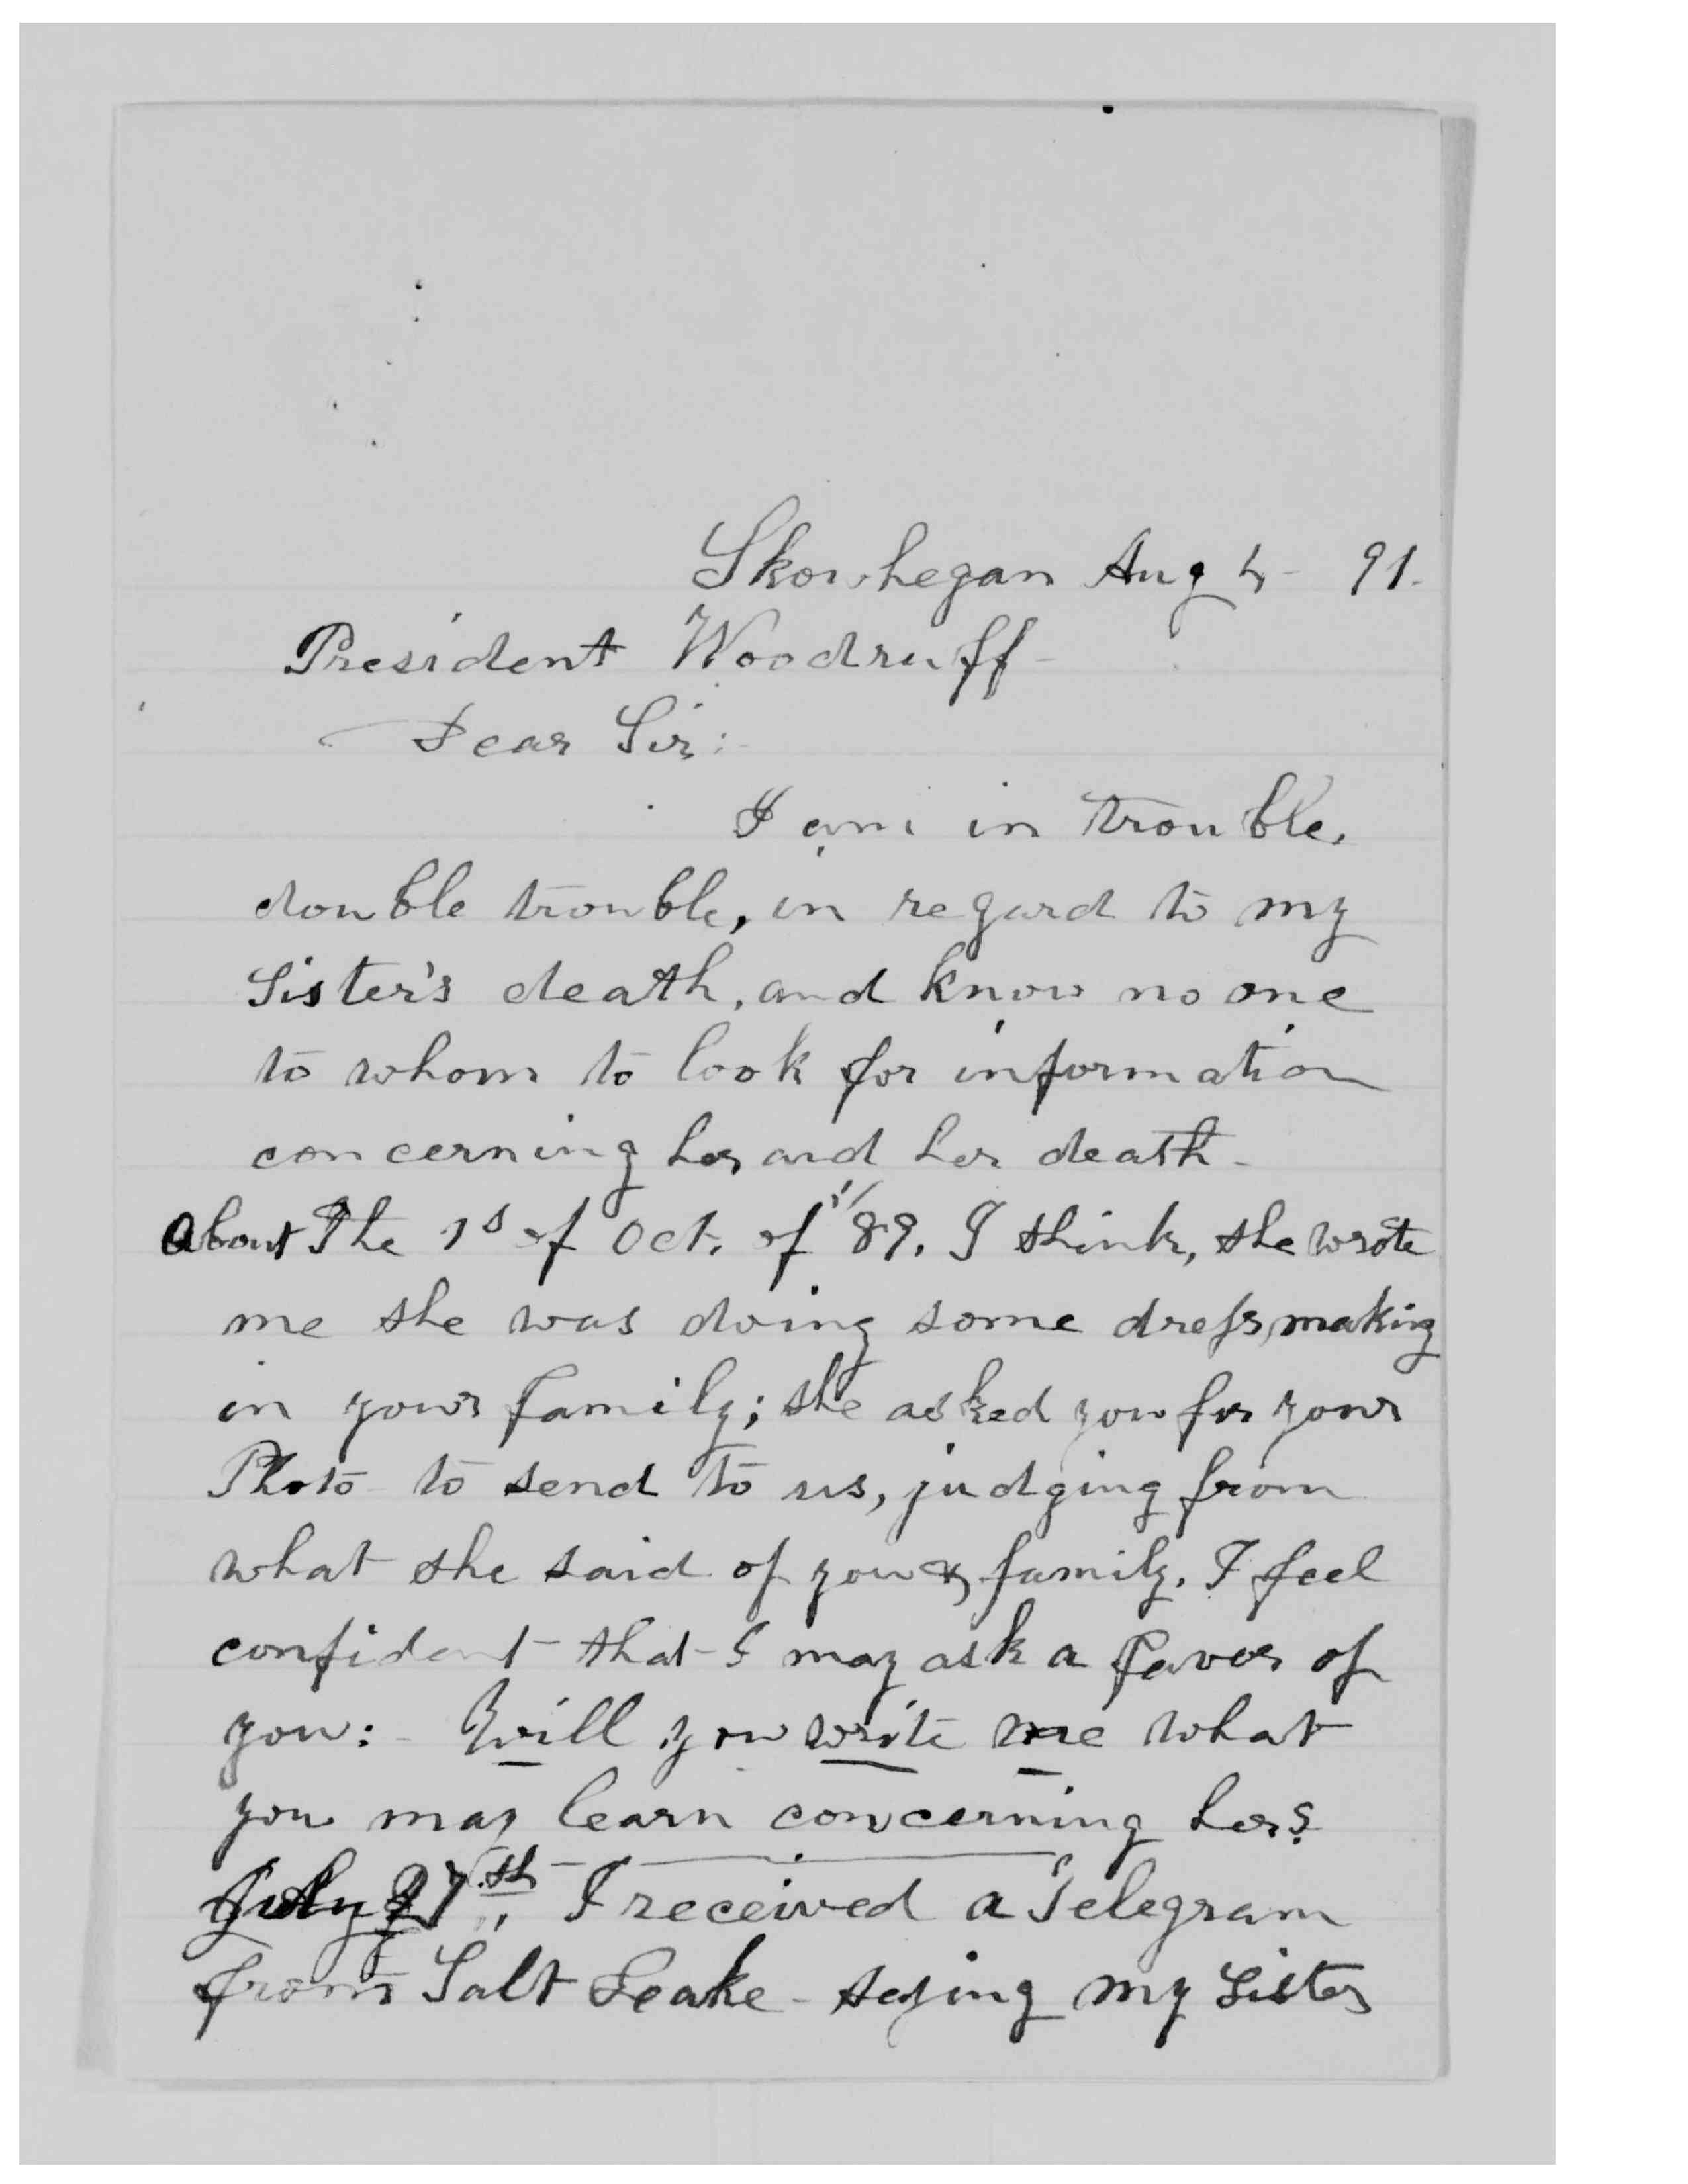 Skowhegan Aug 4 - 91.
President Woodruff -
Dear Sir:
I am in trouble,
double trouble, in regard to my
Sister's death, and know no one
to whom to look for information
concerning her and her death -
About The 1s of Oct. of '89. I think, she wrote
me she was doing some dress making
in your family; she asked you for your
Photo to send to us, judging from
what she said of you & family. I feel
confident that I may ask a favor of
you: - Will you write me what
you may learn concerning her?
July 27th, I received a Telegram
from Salt Leake - saying my Sister